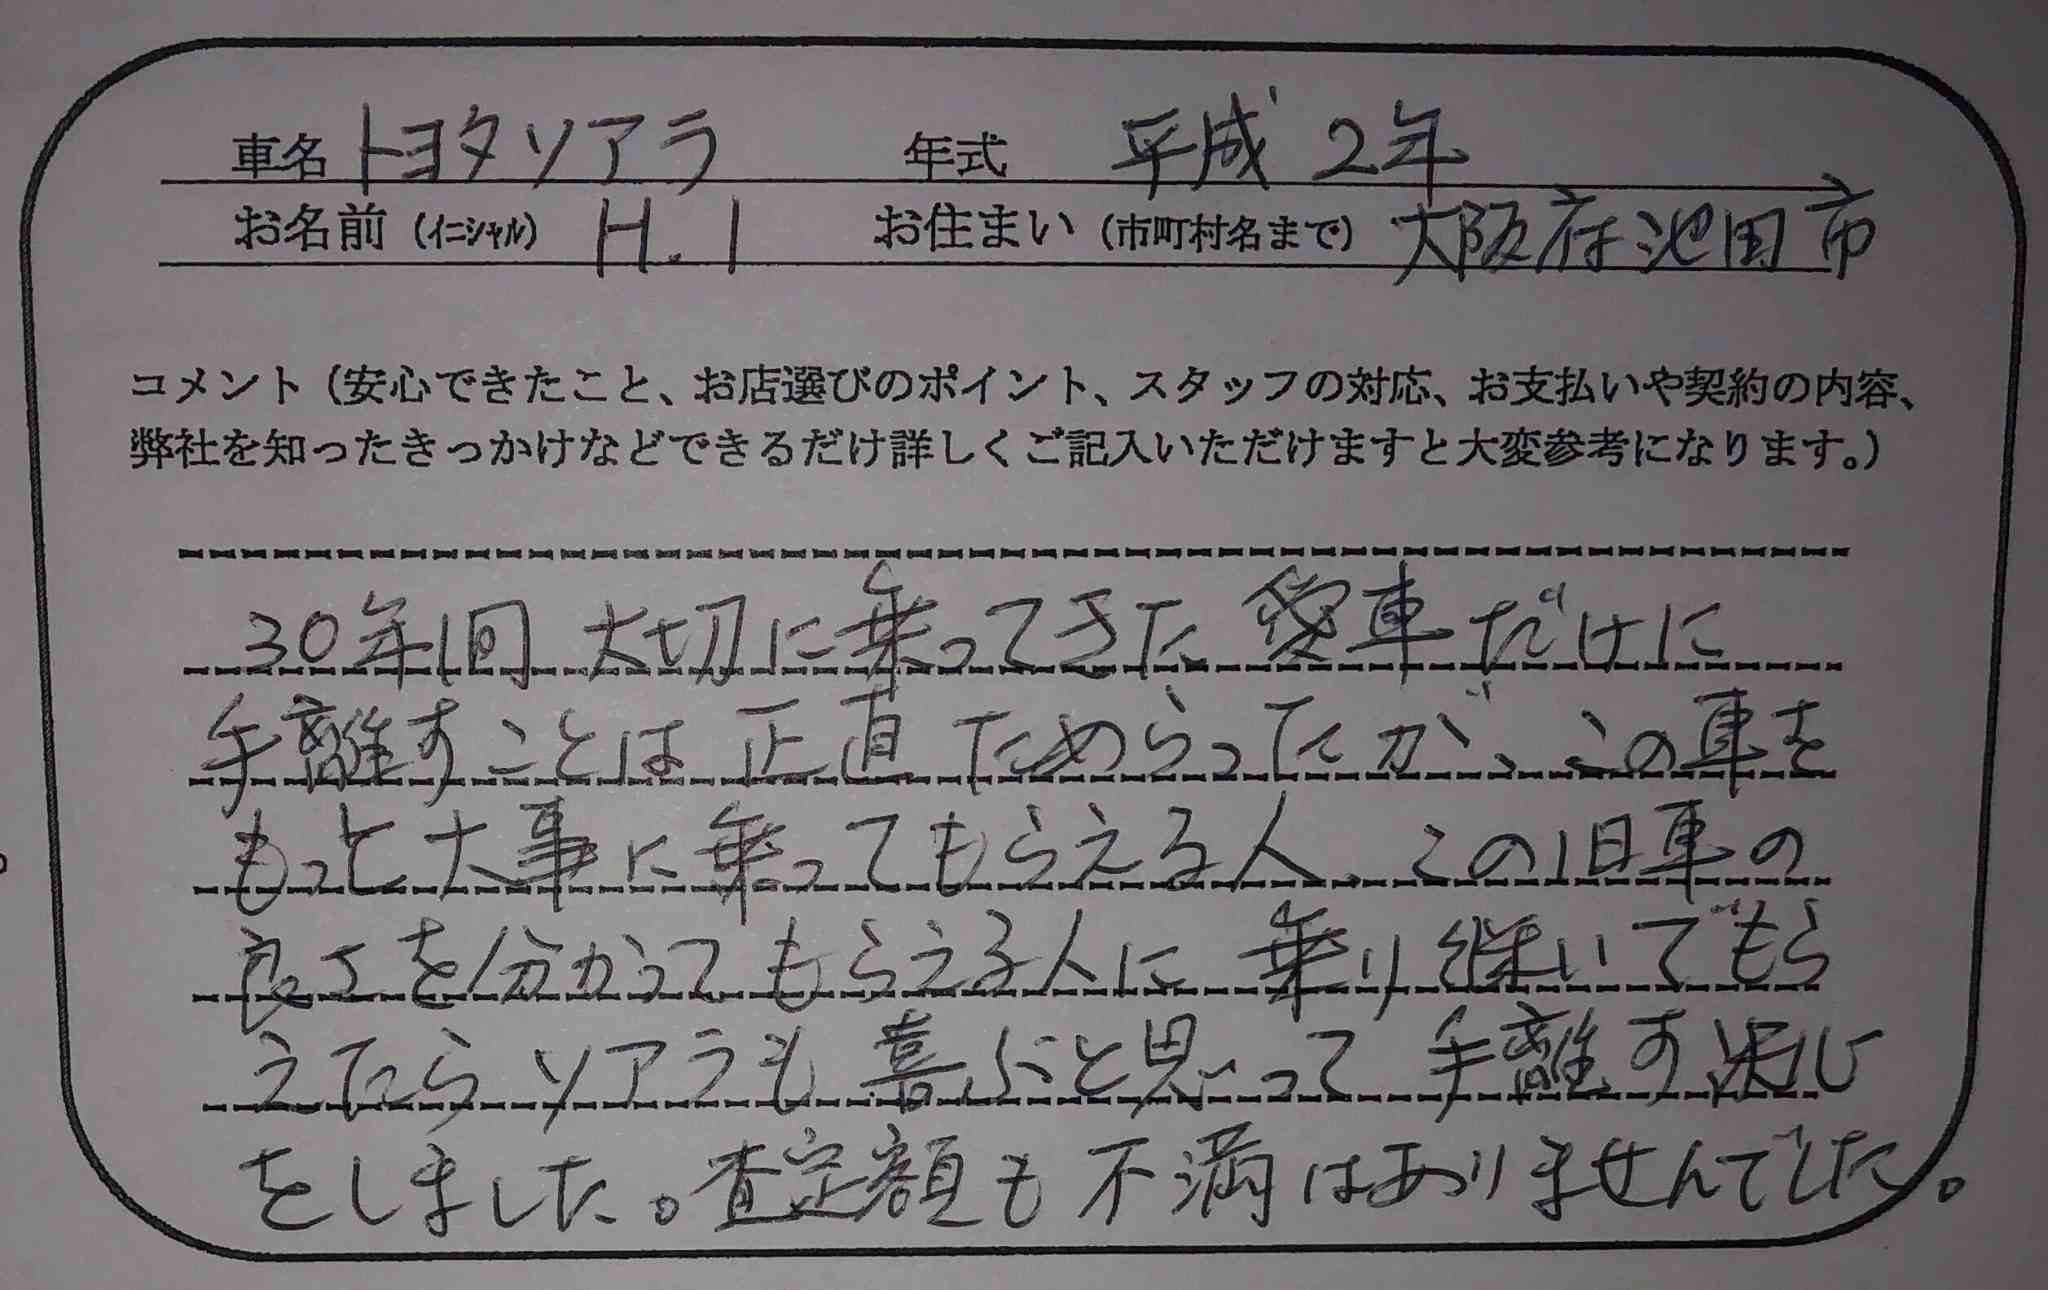 車名 トヨタソアラ 年式 平成2年
お名前(イニシャル) H.I お住まい(市町村名まで) 大阪府池田市
コメント(安心できたこと、お店選びのポイント、スタッフの対応、お支払いや契約の内容、
弊社を知ったきっかけなどできるだけ詳しくご記入いただけますと大変参考になります。)
30年間 大切に乗ってきた 愛車だけに
手離すことは 正直 ためらったが、この車を
もっと大事に乗ってもらえる人、この旧車の
良さを分かってもらえる人に 乗り継いでもら
えたら ソアラも 喜ぶと思って 手離す決心
をしました。査定額も 不満はありませんでした。